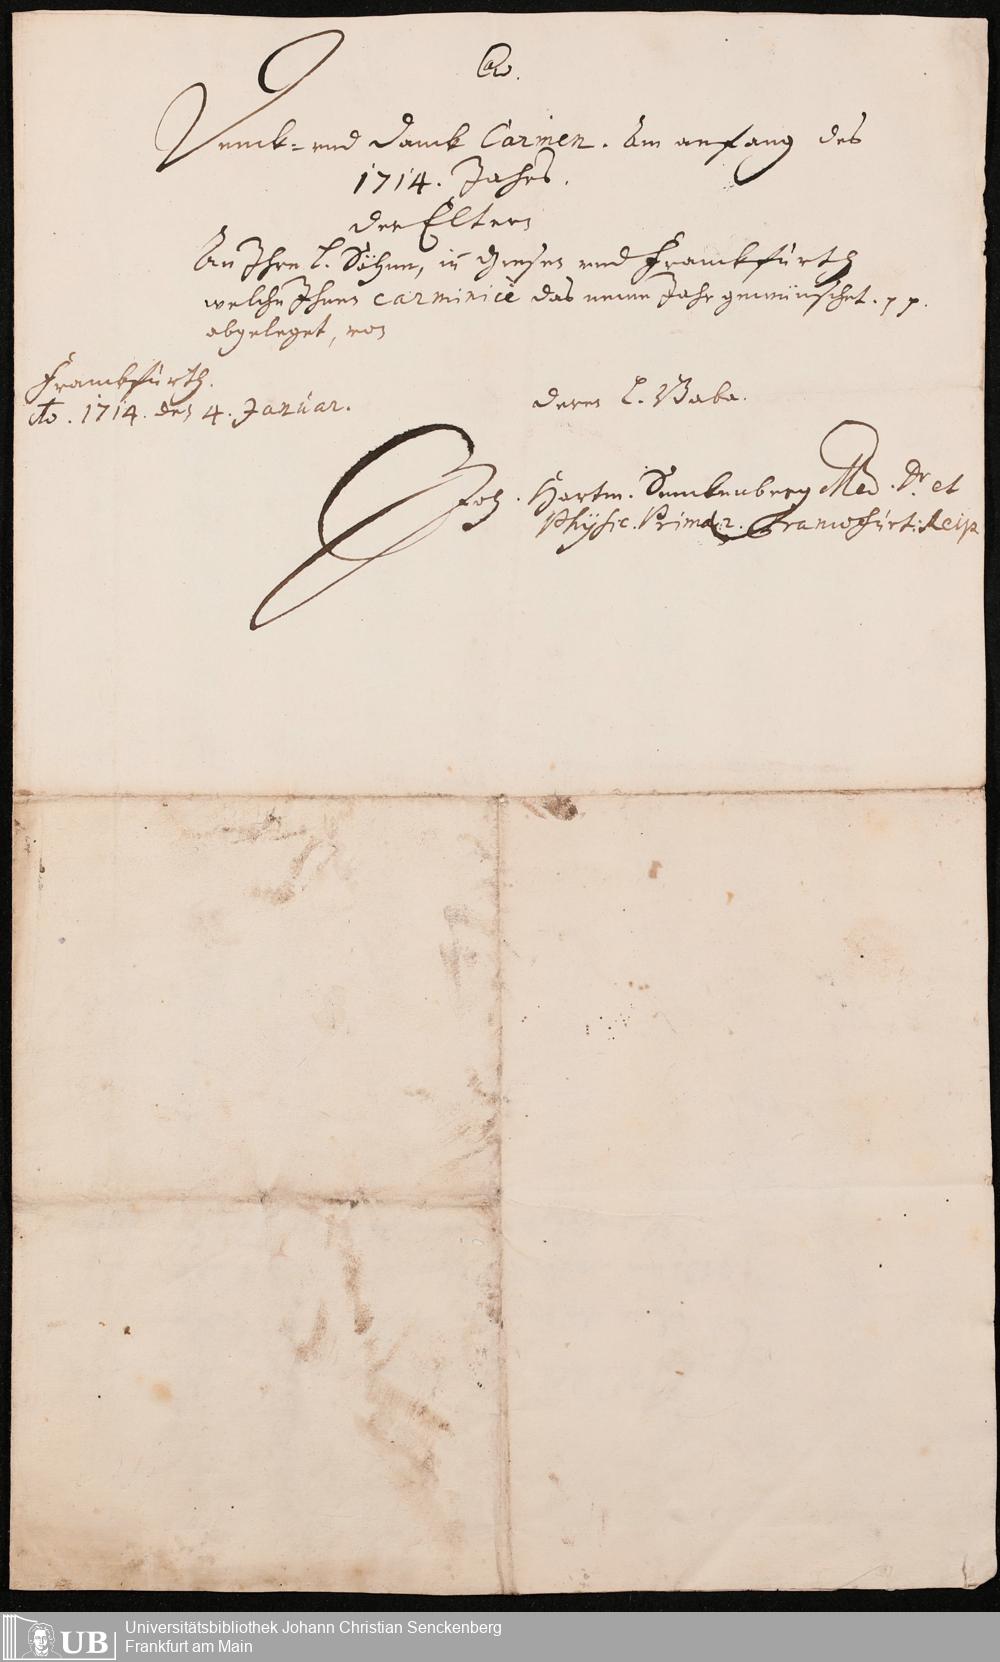 Denck- und Danck Carmen. Am anfang des
1714. Jahrs.
der Eltern
An Ihre l. Söhne, in Giesen und Franckfürth
welche Ihnen carminice das neue Jahr gewünschet. pp.
abgeleget, von
Franckfürth.
Ao. 1714. den 4. Januar.
deren l. Baba.
Joh. Hartm. Senckenberg Med. Dr. et
Physic. Primar. Francofürt: Reip
Universitätsbibliothek Johann Christian Senckenberg
UB Frankfurt am Main